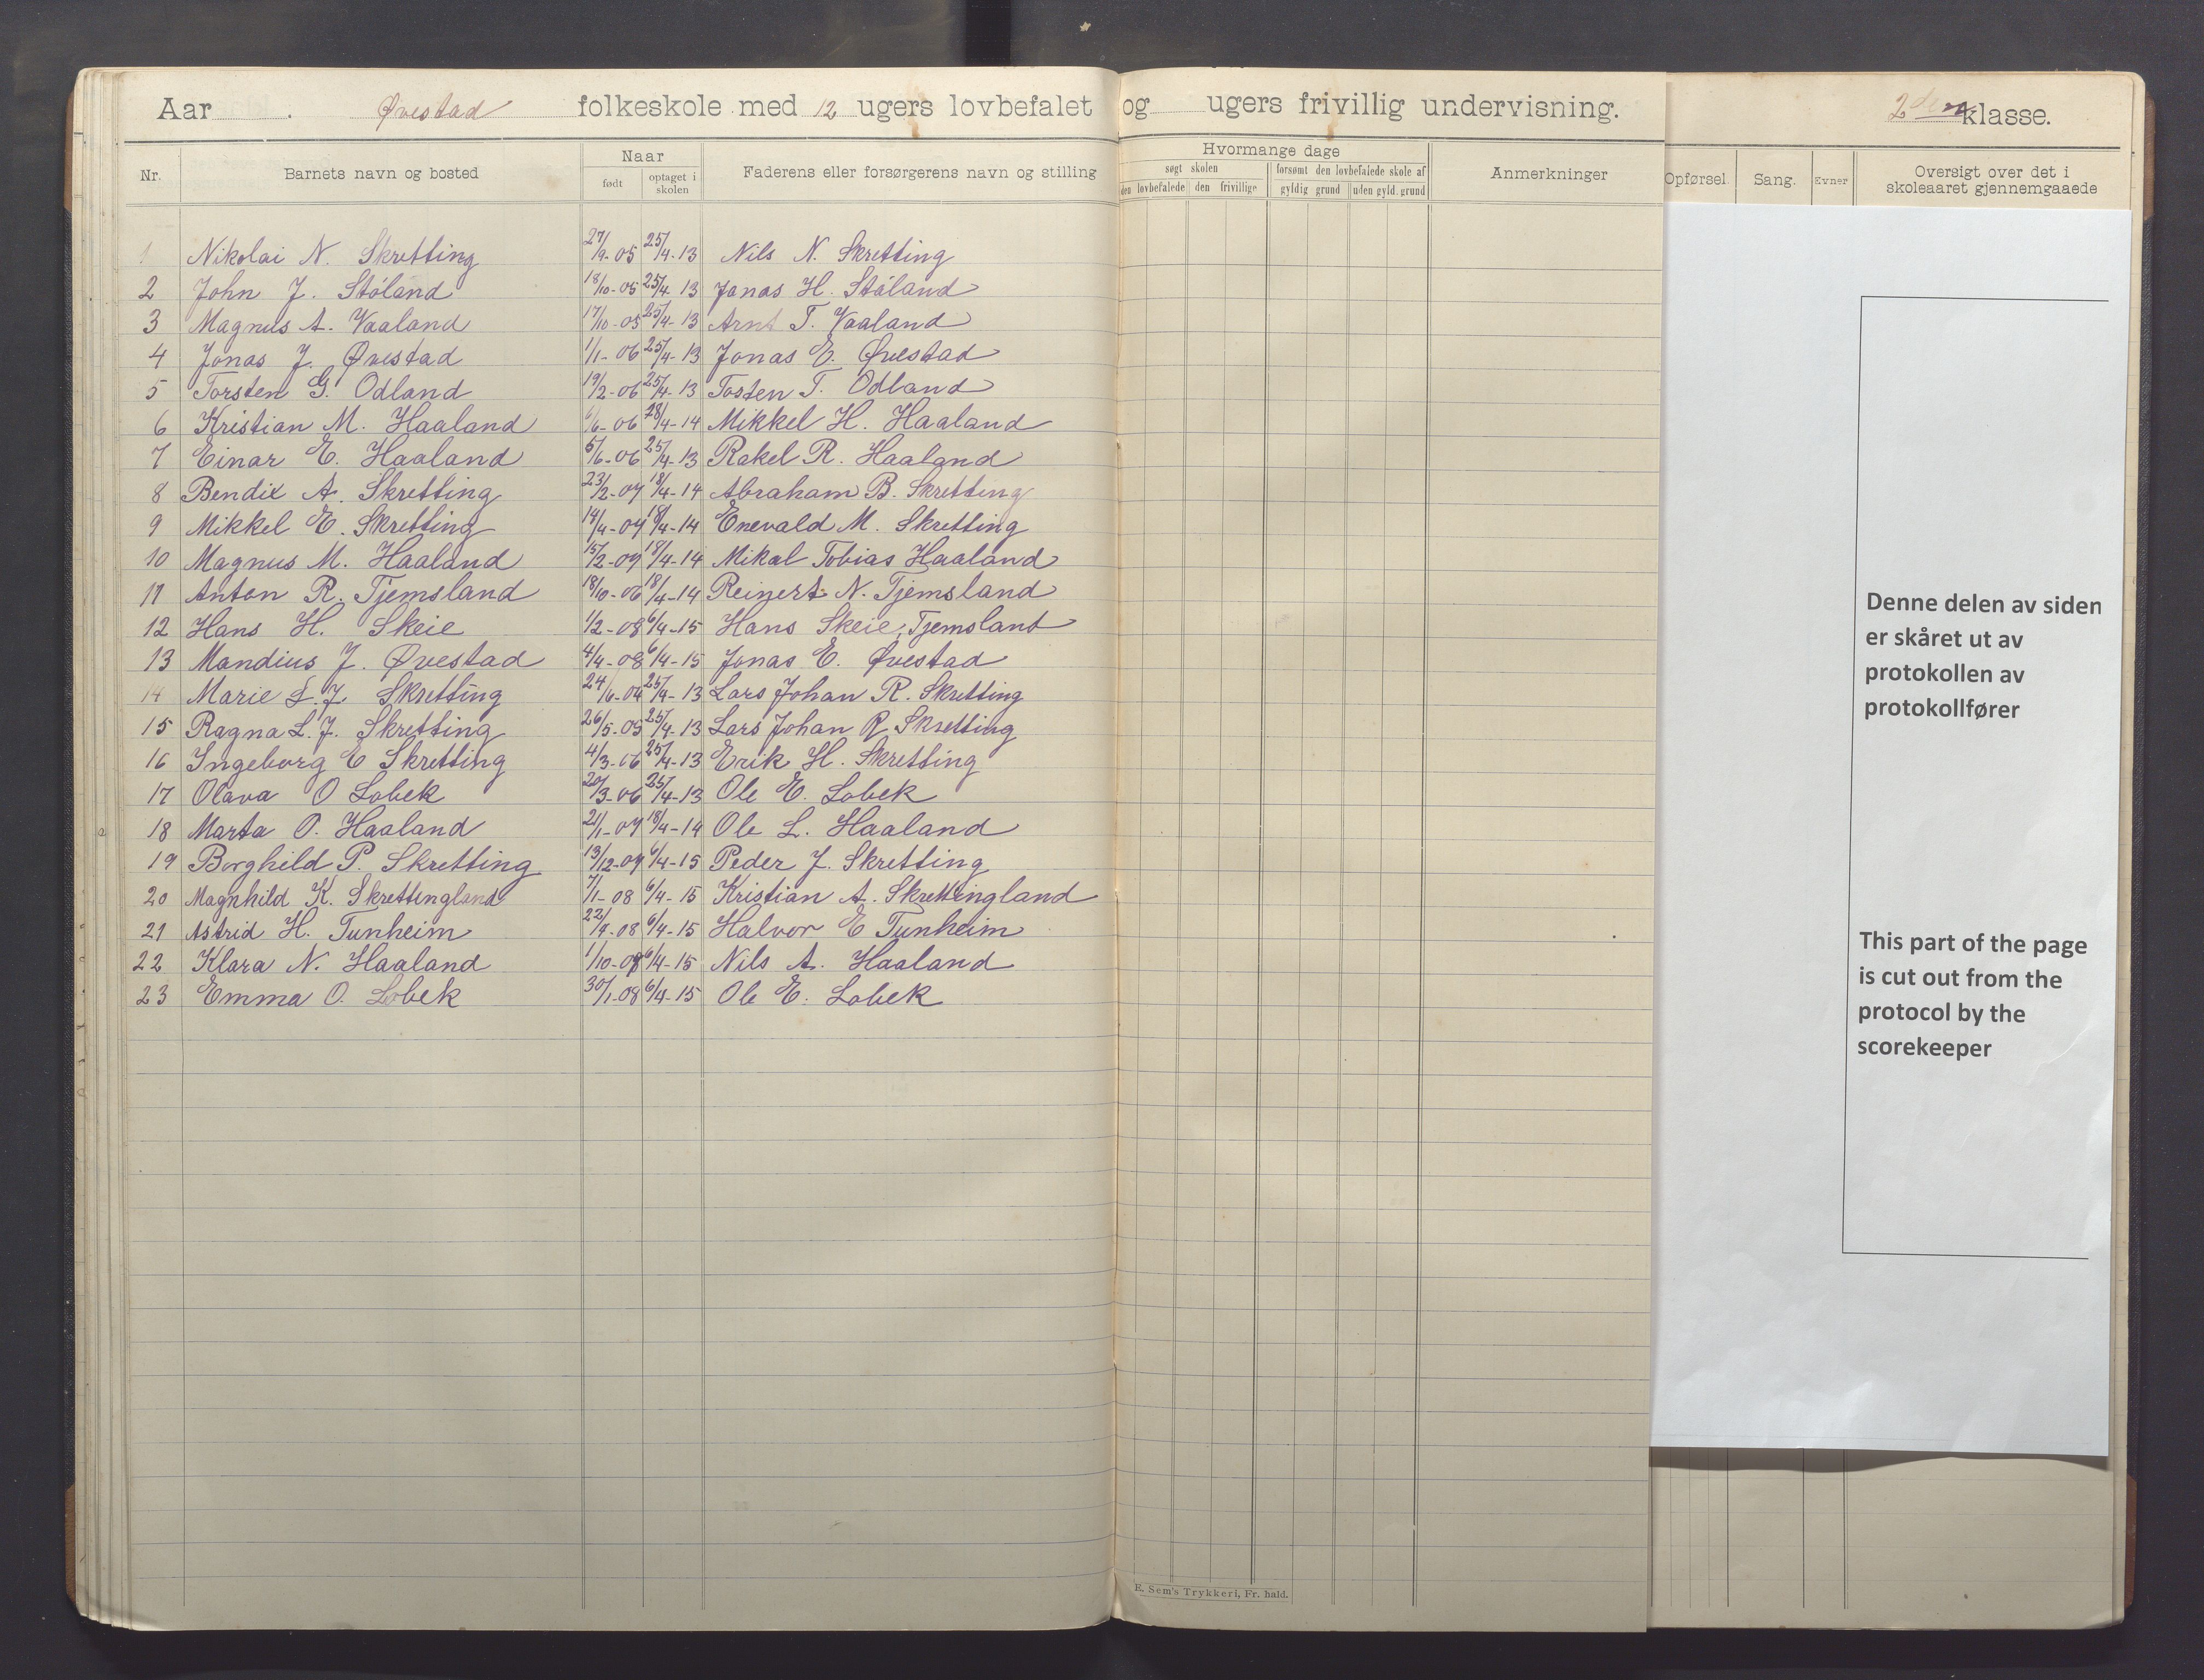 Aar . Øvestad folkeskole med 12 ugers lovbefalet og ugers frivillig undervisning. 2den klasse.
Nr. Barnets navn og bosted Naar født optaget i skolen Faderens eller forsørgerens navn og stilling Hvormange dage søgt skolen den lovbefalede den frivillige forsømt den lovbefalede skole af gyldig grund uden gyld. grund Anmerkninger Opførsel. Sang. Evner Oversigt over det i skoleaaret gjennemgaaede
1 Nikolai N. Skretting 27/9-05 25/4-13 Nils N. Skretting
2 John J. Ståland 18/10-05 25/4 13 Jonas H. Ståland
3 Magnus A. Vaaland 17/10-05 25/4-13 Arnt T. Vaaland
4 Jonas J. Øvestad 1/1-06 25/4-13 Jonas E. Øvestad
5 Torsten G. Odland 19/2-06 25/4-13 Tosten T. Odland
6 Kristian M. Haaland 6/6-06 18/4-14 Mikkel H. Haaland
7 Einar E. Haaland 5/6-06 25/4-13 Rakel R. Haaland
8 Bendix A. Skretting 23/2-07 18/4-14 Abraham B. Skretting
9 Mikkel E. Skretting 14/4-07 18/4-14 Enevald M. Skretting
10 Magnus M. Haaland 15/2-07 18/4-14 Mikal Tobias Haaland
11 Anton R. Tjemsland 18/10-06 18/4-14 Reinert N. Tjemsland
12 Hans H. Skeie 1/2-08 6/4-15 Hans Skeie, Tjemsland
13 Mandius J. Øvestad 4/4-08 6/4-15 Jonas E. Øvestad
14 Marie L.J. Skretting 24/6-04 25/4-13 Lars Johan R. Skretting
15 Ragna L.J. Skretting 26/5-05 25/4-13 Lars Johan R Skretting
16 Ingeborg E Skretting 4/3-06 25/4-13 Erik H. Skretting
17 Olava O Lobek 20/3-06 25/4-13 Ole E. Lobek
18 Marta O. Haaland 21/1-07 18/4-14 Ole L. Haaland
19 Borghild P. Skretting 13/12-07 6/4-15 Peder J. Skretting
20 Magnhild K. Skrettingland 7/1-08 6/4-15 Kristian A. Skrettingland
21 Astrid H. Tunheim 22/9-08 6/4-15 Halvor E Tunheim
22 Klara N. Haaland 1/10-07 6/4-15 Nils A. Haaland
23 Emma O. Lobek 30/1-08 6/4-15 Ole E. Lobek
E. Sem's Trykkeri, Fr. hald.
Denne delen av siden
er skåret ut av
protokollen av
protokollfører
This part of the page
is cut out from the
protocol by the
scorekeeper